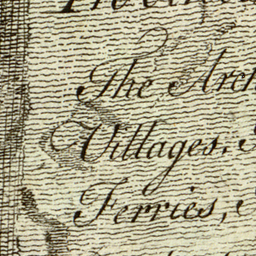 The Arch
Villages,
Ferries,